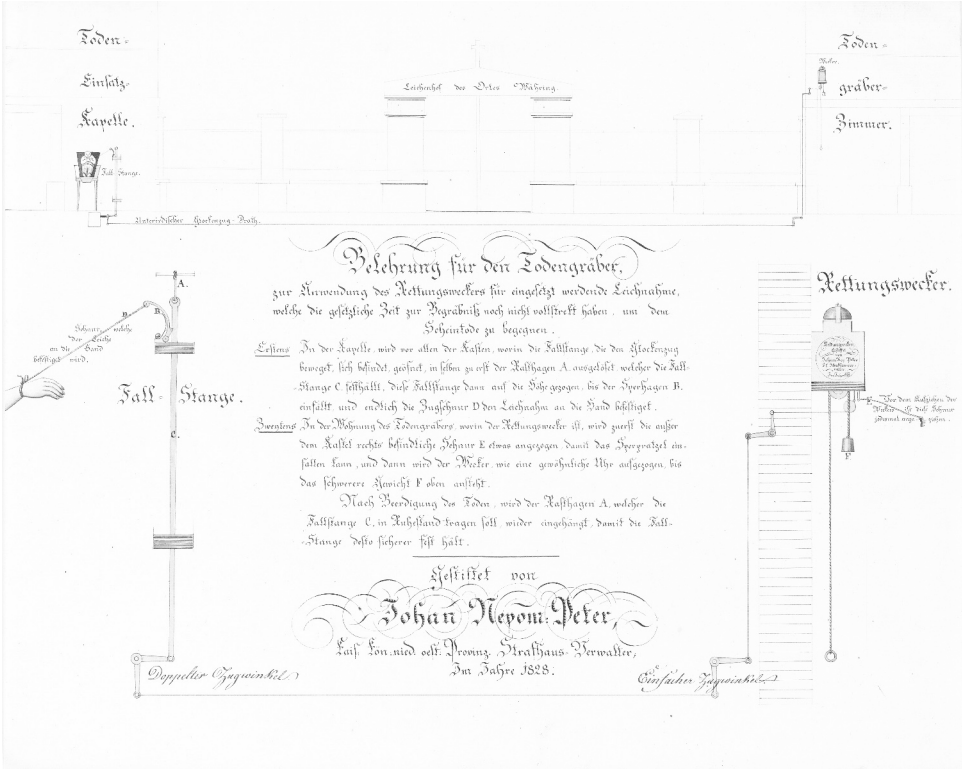 Toden-
Einsatz-
Kapelle.
Fall Stange.
Leichenhof des Ortes Währing.
Toden-
gräber-
Zimmer.
Weker.
Unterirdischer Glockenzug-Drath.
Belehrung für den Todengräber,
zur Anwendung des Rettungsweckers für eingesetzt werdende Leichnahme,
welche die gesetzliche Zeit zur Begräbniß noch nicht vollstrekt haben, um dem
Scheintode zu begegnen.
Erstens In der Kapelle, wird vor allen der Kasten, worin die Fallstange, die den Glockenzug
beweget, sich befindet, geöfnet, in selben zu erst der Rasthagen A. ausgelöset welcher die Fall-
-Stange C. festhällt, diese Fallstange dann auf die Höhe gezogen, bis der Sperhagen B.
einfällt und endlich die Zugschnur D den Leichnahm an die Hand befestiget.
Zweytens In der Wohnung des Todengräbers, worin der Rettungswecker ist, wird zuerst die außer
dem Kastel rechts befindliche Schnur E etwas angezogen damit das Sperpratzel ein-
fallen kann, und dann wird der Wecker, wie eine gewöhnliche Uhr aufgezogen, bis
das schwerere Gewicht F oben ansteht.
Nach Beerdigung des Toden, wird der Rasthagen A, welcher die
Fallstange C, in Ruhestand tragen soll, wieder eingehängt, damit die Fall-
-Stange desto sicherer fest hält.
Gestiftet von
Johan Nepom: Peter,
Kais. kön. nied. oest. Provinz. Strafhaus-Verwalter,
Im Jahre 1828.
A.
B.
D.
Schnur, welche
der Leiche
an die Hand
befestiget wird.
Fall-Stange.
C.
Doppelter Zugwinkel
Rettungswecker.
E
Vor dem Aufziehen der
Weker ist diese Schnur
F
Einfacher Zugwinkel